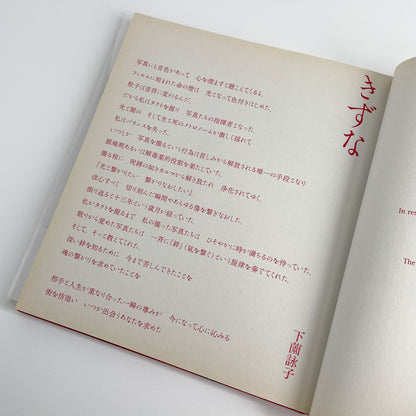 きずな
写真にも音色があって 心を澄ますと聴こえてくるよ。
フィルムに刻まれた命の燈は 光となって色付きはじめた。
粒子は音符に変わるんだ。
だから私はタクトを握り 写真たちの指揮者となった。
光と闇の そして生と死のメトロノームが激しく揺れて
私はバランスを失った。
いつしか 写真を撮るという行為は苦しみから解放される唯一の手段となり
鎮痛剤あるいは解毒薬的役割を果たしていた。
撮る程に 呪縛の如きカルマから解き放たれ 浄化されてゆく。
『光と繋がりたい 繋がりなおしたい』
改心すべく 切り刻んだ瞬間やあらゆる傷を繋ぎなおした。
振り返ると十三年という歳月が経っていた。
私がタクトを握るまで 私の撮った写真たちは ひそやかに時が満ちるのを待っていた。
眠りから覚めた写真たちは 一斉に『絆』（氣を繋ぐ）という旋律を奏でてくれた。
そして、そっと教えてくれた。
深い絆を知るために 今まで苦しんできたことを
魂の繋がりを求めていたことを
相手と人生が重なり合った一瞬の尊みが 今になって心に沁みる
街を彷徨い いつか出会うあなたを求めた
下薗詠子
In re
The